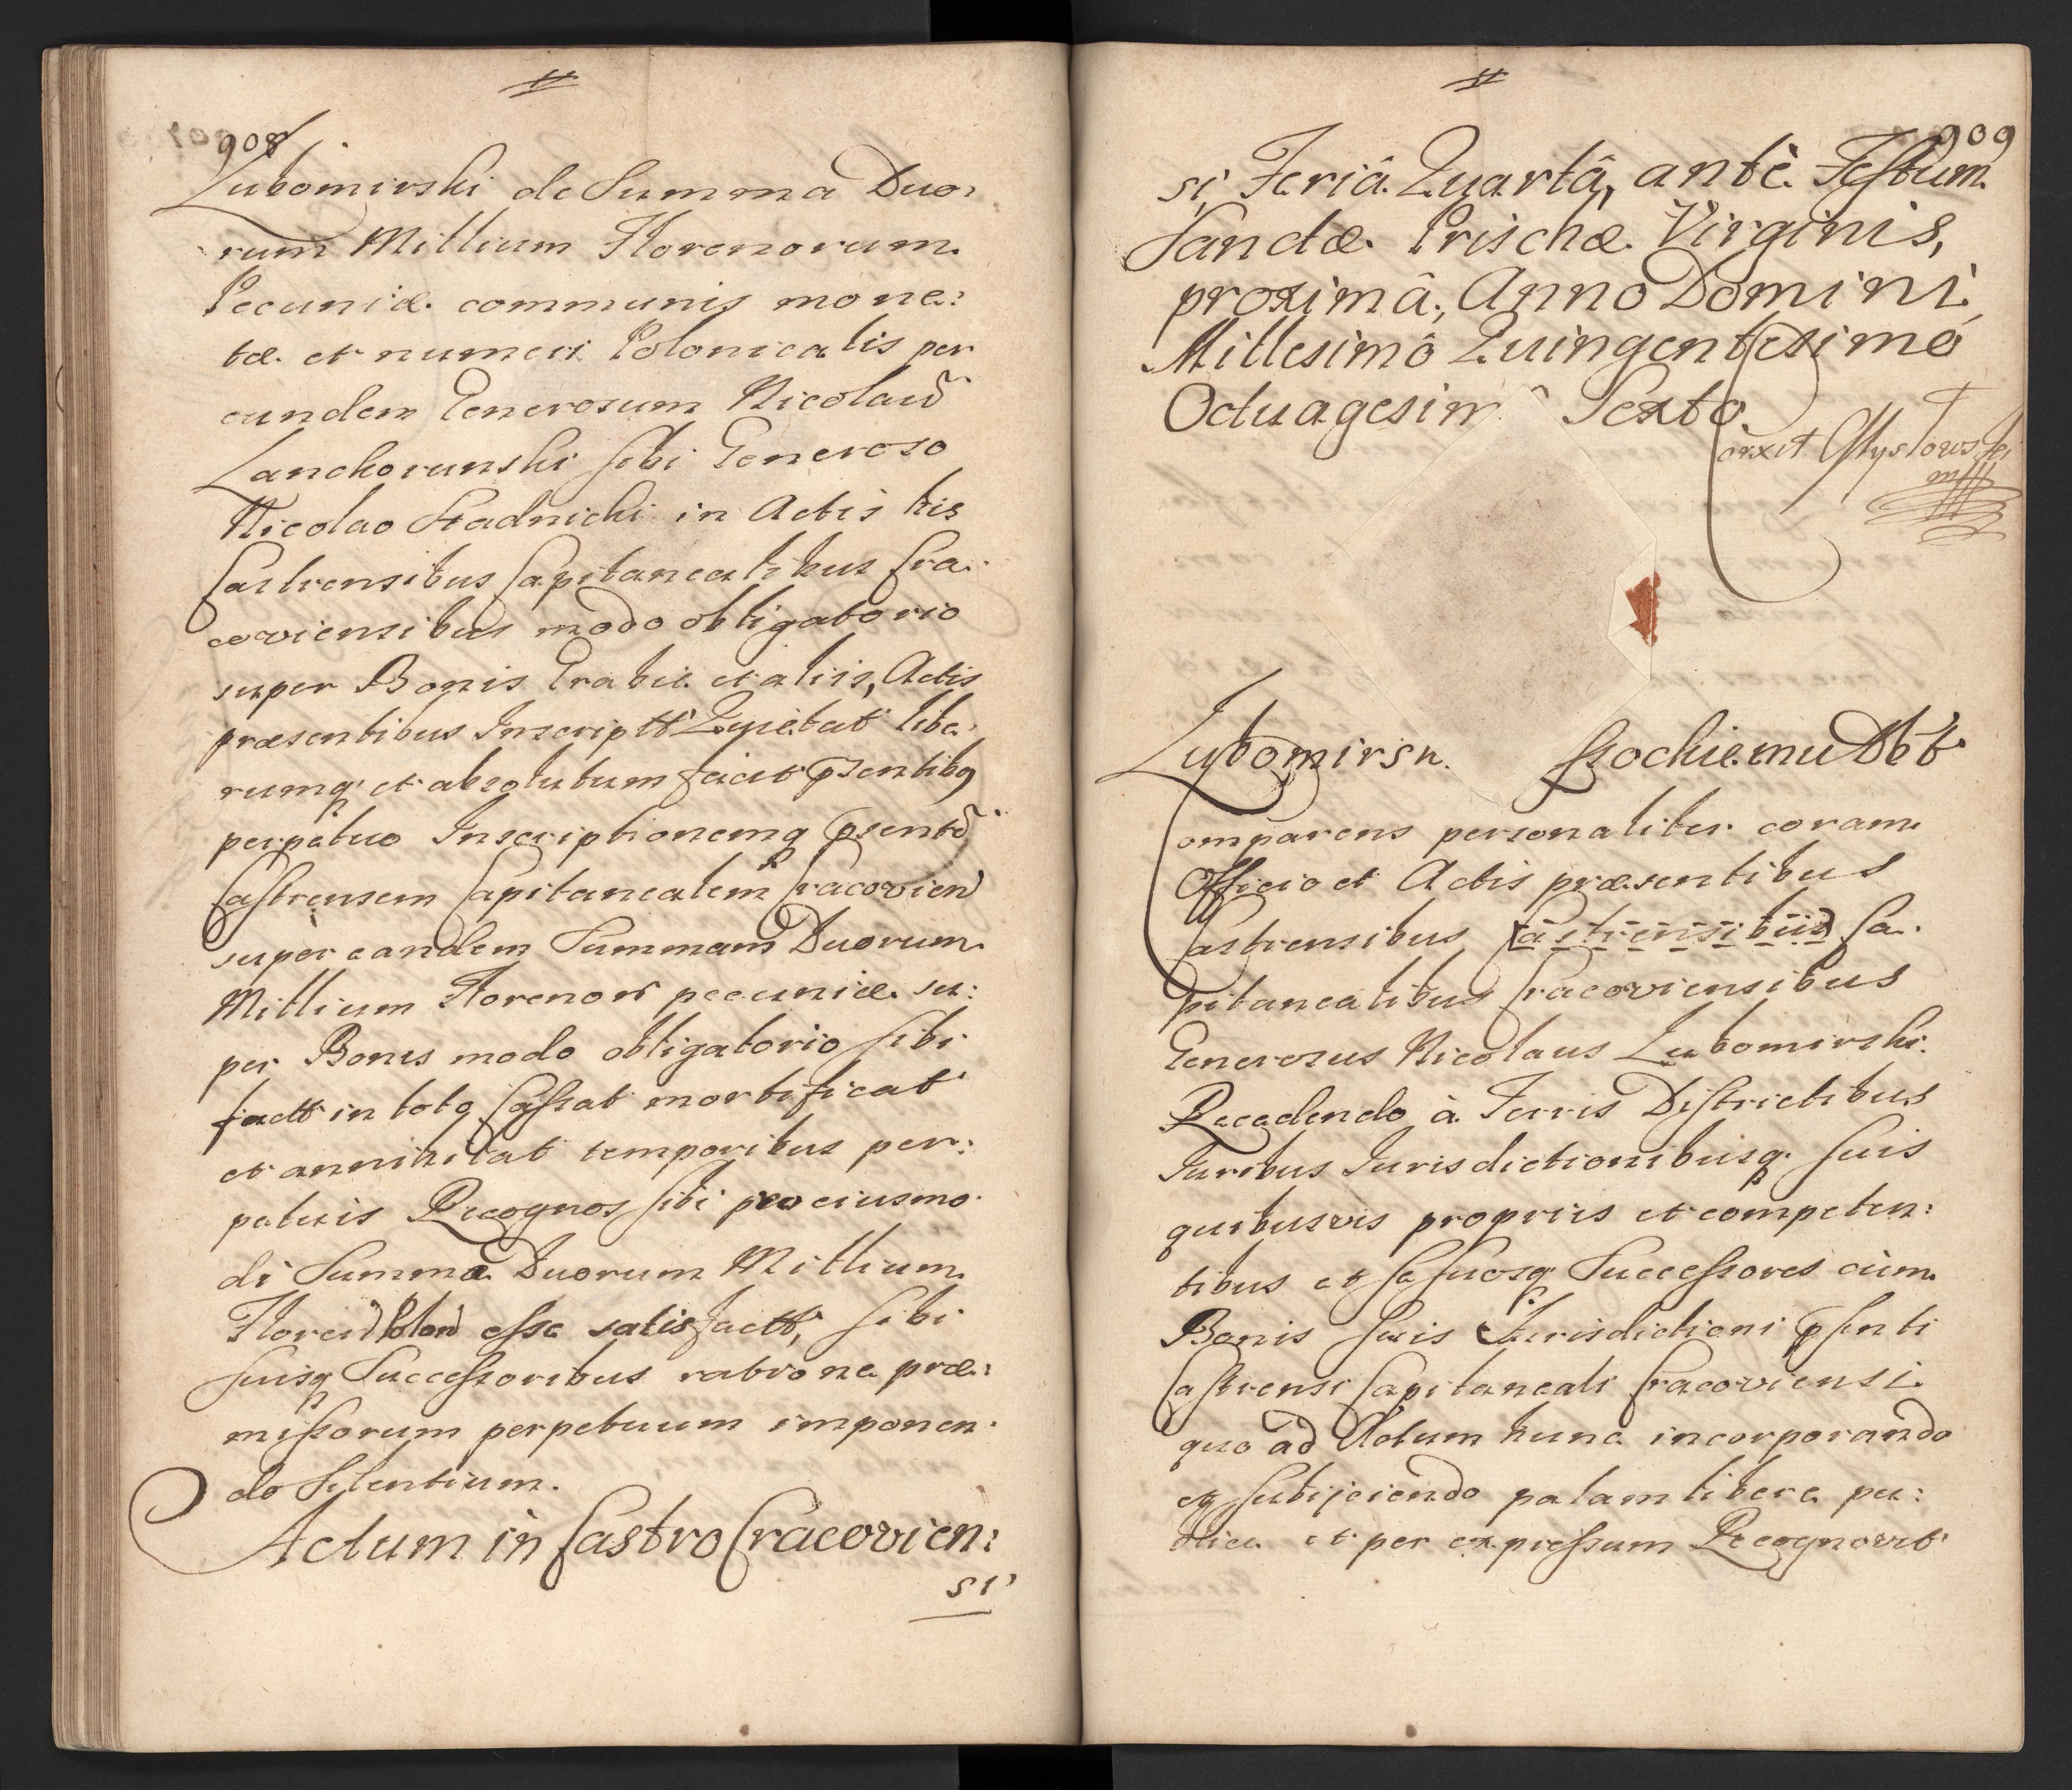 908
Lubomirski de Summa Duo:
rum Millium Florenorum
Pecuniæ communis mone:
tæ et numeri Polonicalis per
eundem Generosum Nicolaū
Lanckorunski sibi Generoso
Nicolao Stadnicki in Actis his
Castrensibus Capitanealibus Cra:
coviensibus modo obligatorio
super Bonis Grabie et aliis, Actis
præsentibus Inscriptt Quietat libe:
rumq et absolutum facit psentibq
perpetuo Inscriptionemq psentē
Castrensem Capitanealem Cracovien
super eandem Summam Duorum
Millium Florenor pecuniæ su:
per Bonis modo obligatorio sibi
factt in totq Cassat mortificat
et annihilat temporibus per:
petuis Recognos sibi pro eiusmo
di Summa Duorum Millium
Floren Polon esse satisfactt, sibi
suisq Successoribus ratione præ:
missorum perpetuum imponen
do Silentium.
Actum in Castro Cracovien:
si
909
si, Feriâ Quartâ, antè Festum
Sanctæ Priscæ Virginis,
proximâ, Anno Domini
Millesimô Quingentesimô
Octuagesim Sexto.
Corxit
Lubomirsk. ssochiemu Abt
Comparens personaliter coram
Officio et Actis præsentibus
Castrensibus (Castrensibus) Ca:
pitanealibus Cracoviensibus
Generosus Nicolaus Lubomirski
Recedendo à Terris Districtibus
Iuribus Iurisdictionibusq suis
quibusvis propriis et competen:
tibus et se suosq Successores cum
Bonis suis Iurisdictioni psenti
Castrensi Capitaneali Cracoviensi
quo ad Actum hunc incorporando
et subijciendo palam libere pu:
blice et per expressum Recognovit